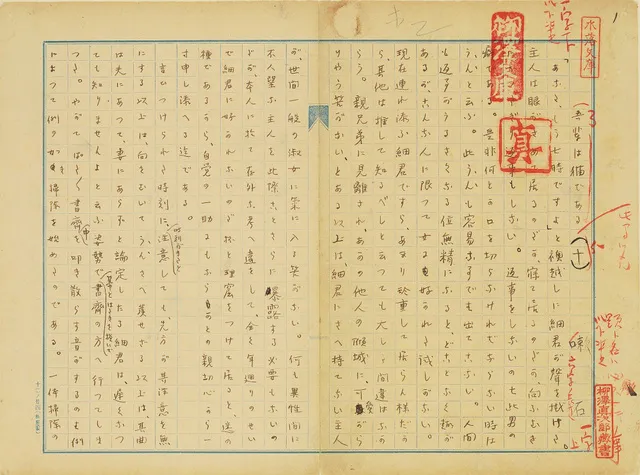 水落文庫
(吾輩は猫である (十)
漱石
「あなた、もう七時ですよ」と襖越しに細君が声を掛けた。
主人は眼がさめて居るのだか、寝て居るのだか、向ふむき
返事もしない。返事をしないのは此男の
癖である。是非何とか口を切らなければならない時は
うんと云ふ。此うんも容易な事では出て来ない。人間
も返事がうるさくなる位無精になると、どことなく趣が
あるがこんな人に限つて女に好かれた試しがない。
現在連れ添ふ細君ですら、あまり珍重して居らん様だか
ら、其他は推して知るべしと云つても大した間違はなか
らう。親兄弟に見離され、あかの他人の傾城に、可愛がら
りやう筈がない、とある以上は、細君にさへ持てない主人
が、世間一般の淑女に気に入る筈がない。何も異性間に
不人望な主人を此際ことさらに暴露する必要もないの
だが、本人に於て存外な考へ違をして、全く年廻りのせい
で細君に好かれないのだ抔と理窟をつけて居ると、迷の
種であるから、自覚の一助にもならうかとの親切心から一
寸申し添へる迄である。
言ひつけられた時刻に、時刻がきたと注意しても、先方が其注意を無
にする以上は、向をむいてうんさへ発せざる以上は、其曲
は夫にあつて妻にあらずと論定したる細君は、遅くなつ
ても知りませんよと云ふ姿勢で箒とはたきを担いで書斎の方へ行つてしまつ
つた。やがてぱたぱた書斎中を叩き散らす音がするのは例
によつて例の如き掃除を始めたのである。一体掃除の
柳澤真次郎蔵書